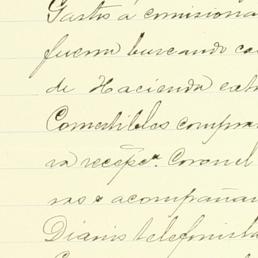 Gastos á comisiona
fueron buscando ca
de Hacienda extr
Comestibles compra
ra recepn. Coronel
ras & acompañan
Diario telefonista